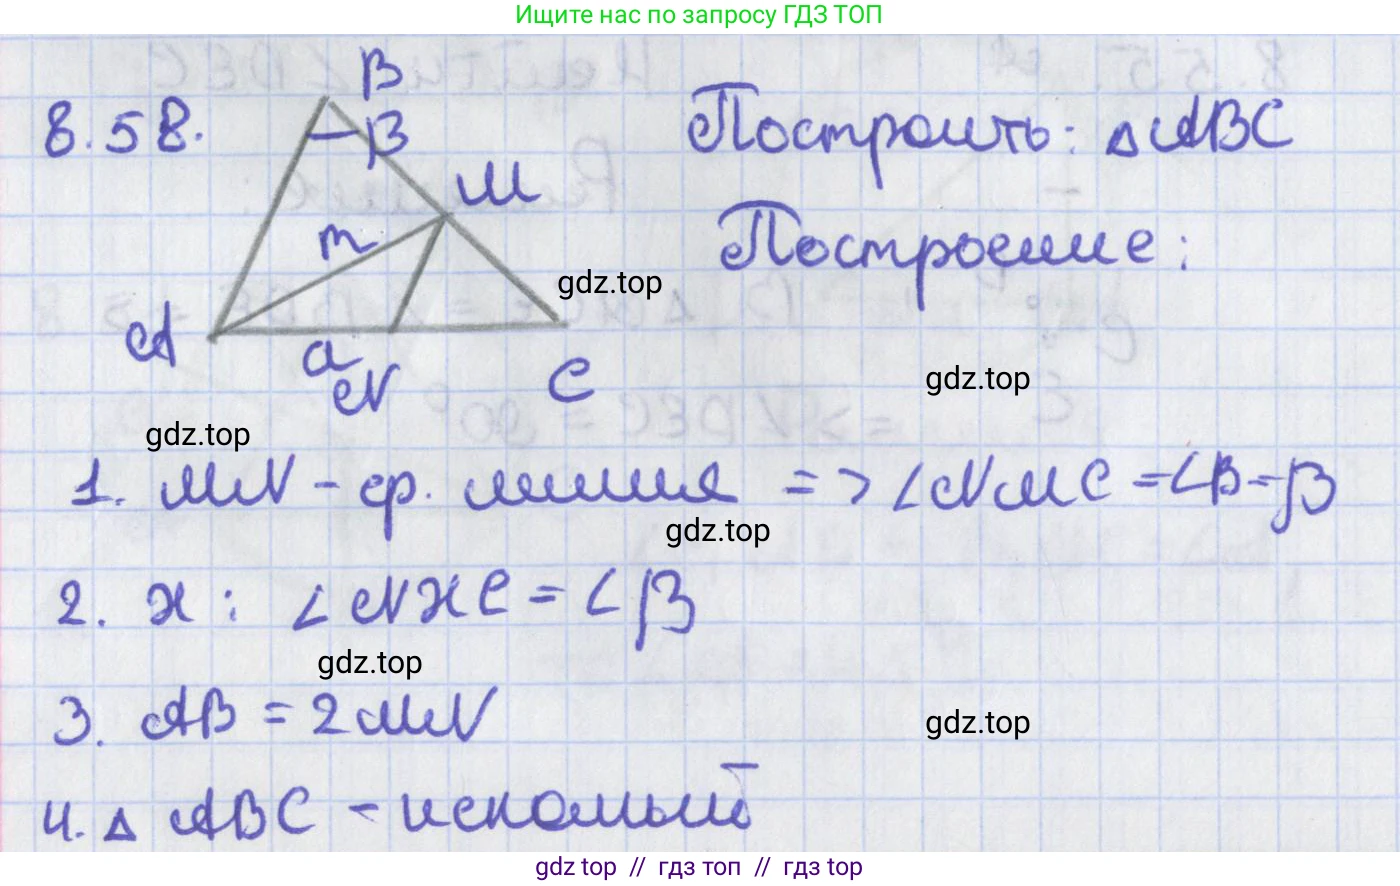 Ищите нас по запросу ГДЗ ТОП
8.58.
B
β
M
m
A
a
N
C
Построить: △ABC
Построение:
gdz.top
gdz.top
gdz.top
1. MN - ср. линия => ∠NMC = ∠B = β
gdz.top
2. X : ∠NXC = ∠β
gdz.top
3. AB = 2MN
gdz.top
4. △ ABC - искомый
gdz top // гдз топ // гдз top